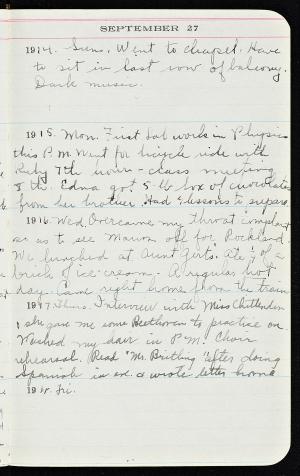 SEPTEMBER 27
1914. Sun. Went to chapel. Have
to sit in last row of balcony.
Dark music.
1915. Mon. First Lab work in Physics
this P.M. Went for bicycle ride with
Ruby 7th hour - class meeting
8 th. Edna got 5 lb box of chocolates
from her brother. Had 4 lessons to prepare
1916. Wed. Overcame my throat complaint
so as to see Marion off for Rockland.
We lunched at Aunt Gert's. Ate ½ of a
brick of ice cream. A regular hot
day. Came right home from the train
1917. Thurs. Interview with Miss Chittenden
& she gave me some Beethoven to practice on.
Washed my hair in P.M. Choir
rehearsal. Read "Mr. Britling" after doing
Spanish in eve. & wrote letter home
1918. Fri.